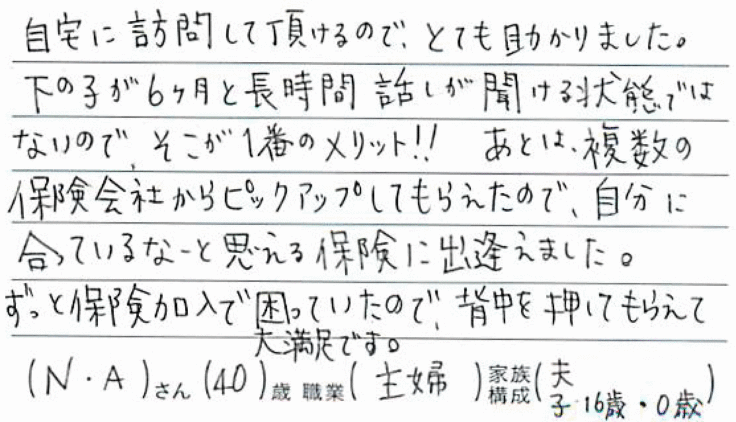 自宅に訪問して頂けるので、とても助かりました。
下の子が6ヶ月と長時間話しが聞ける状態では
ないので、そこが1番のメリット!! あとは、複数の
保険会社からピックアップしてもらえたので、自分に
合っているなーと思える保険に出逢えました。
ずっと保険加入で困っていたので、背中を押してもらえて
大満足です。
(N・A)さん(40)歳 職業(主婦)家族構成(夫
子 16歳・0歳)